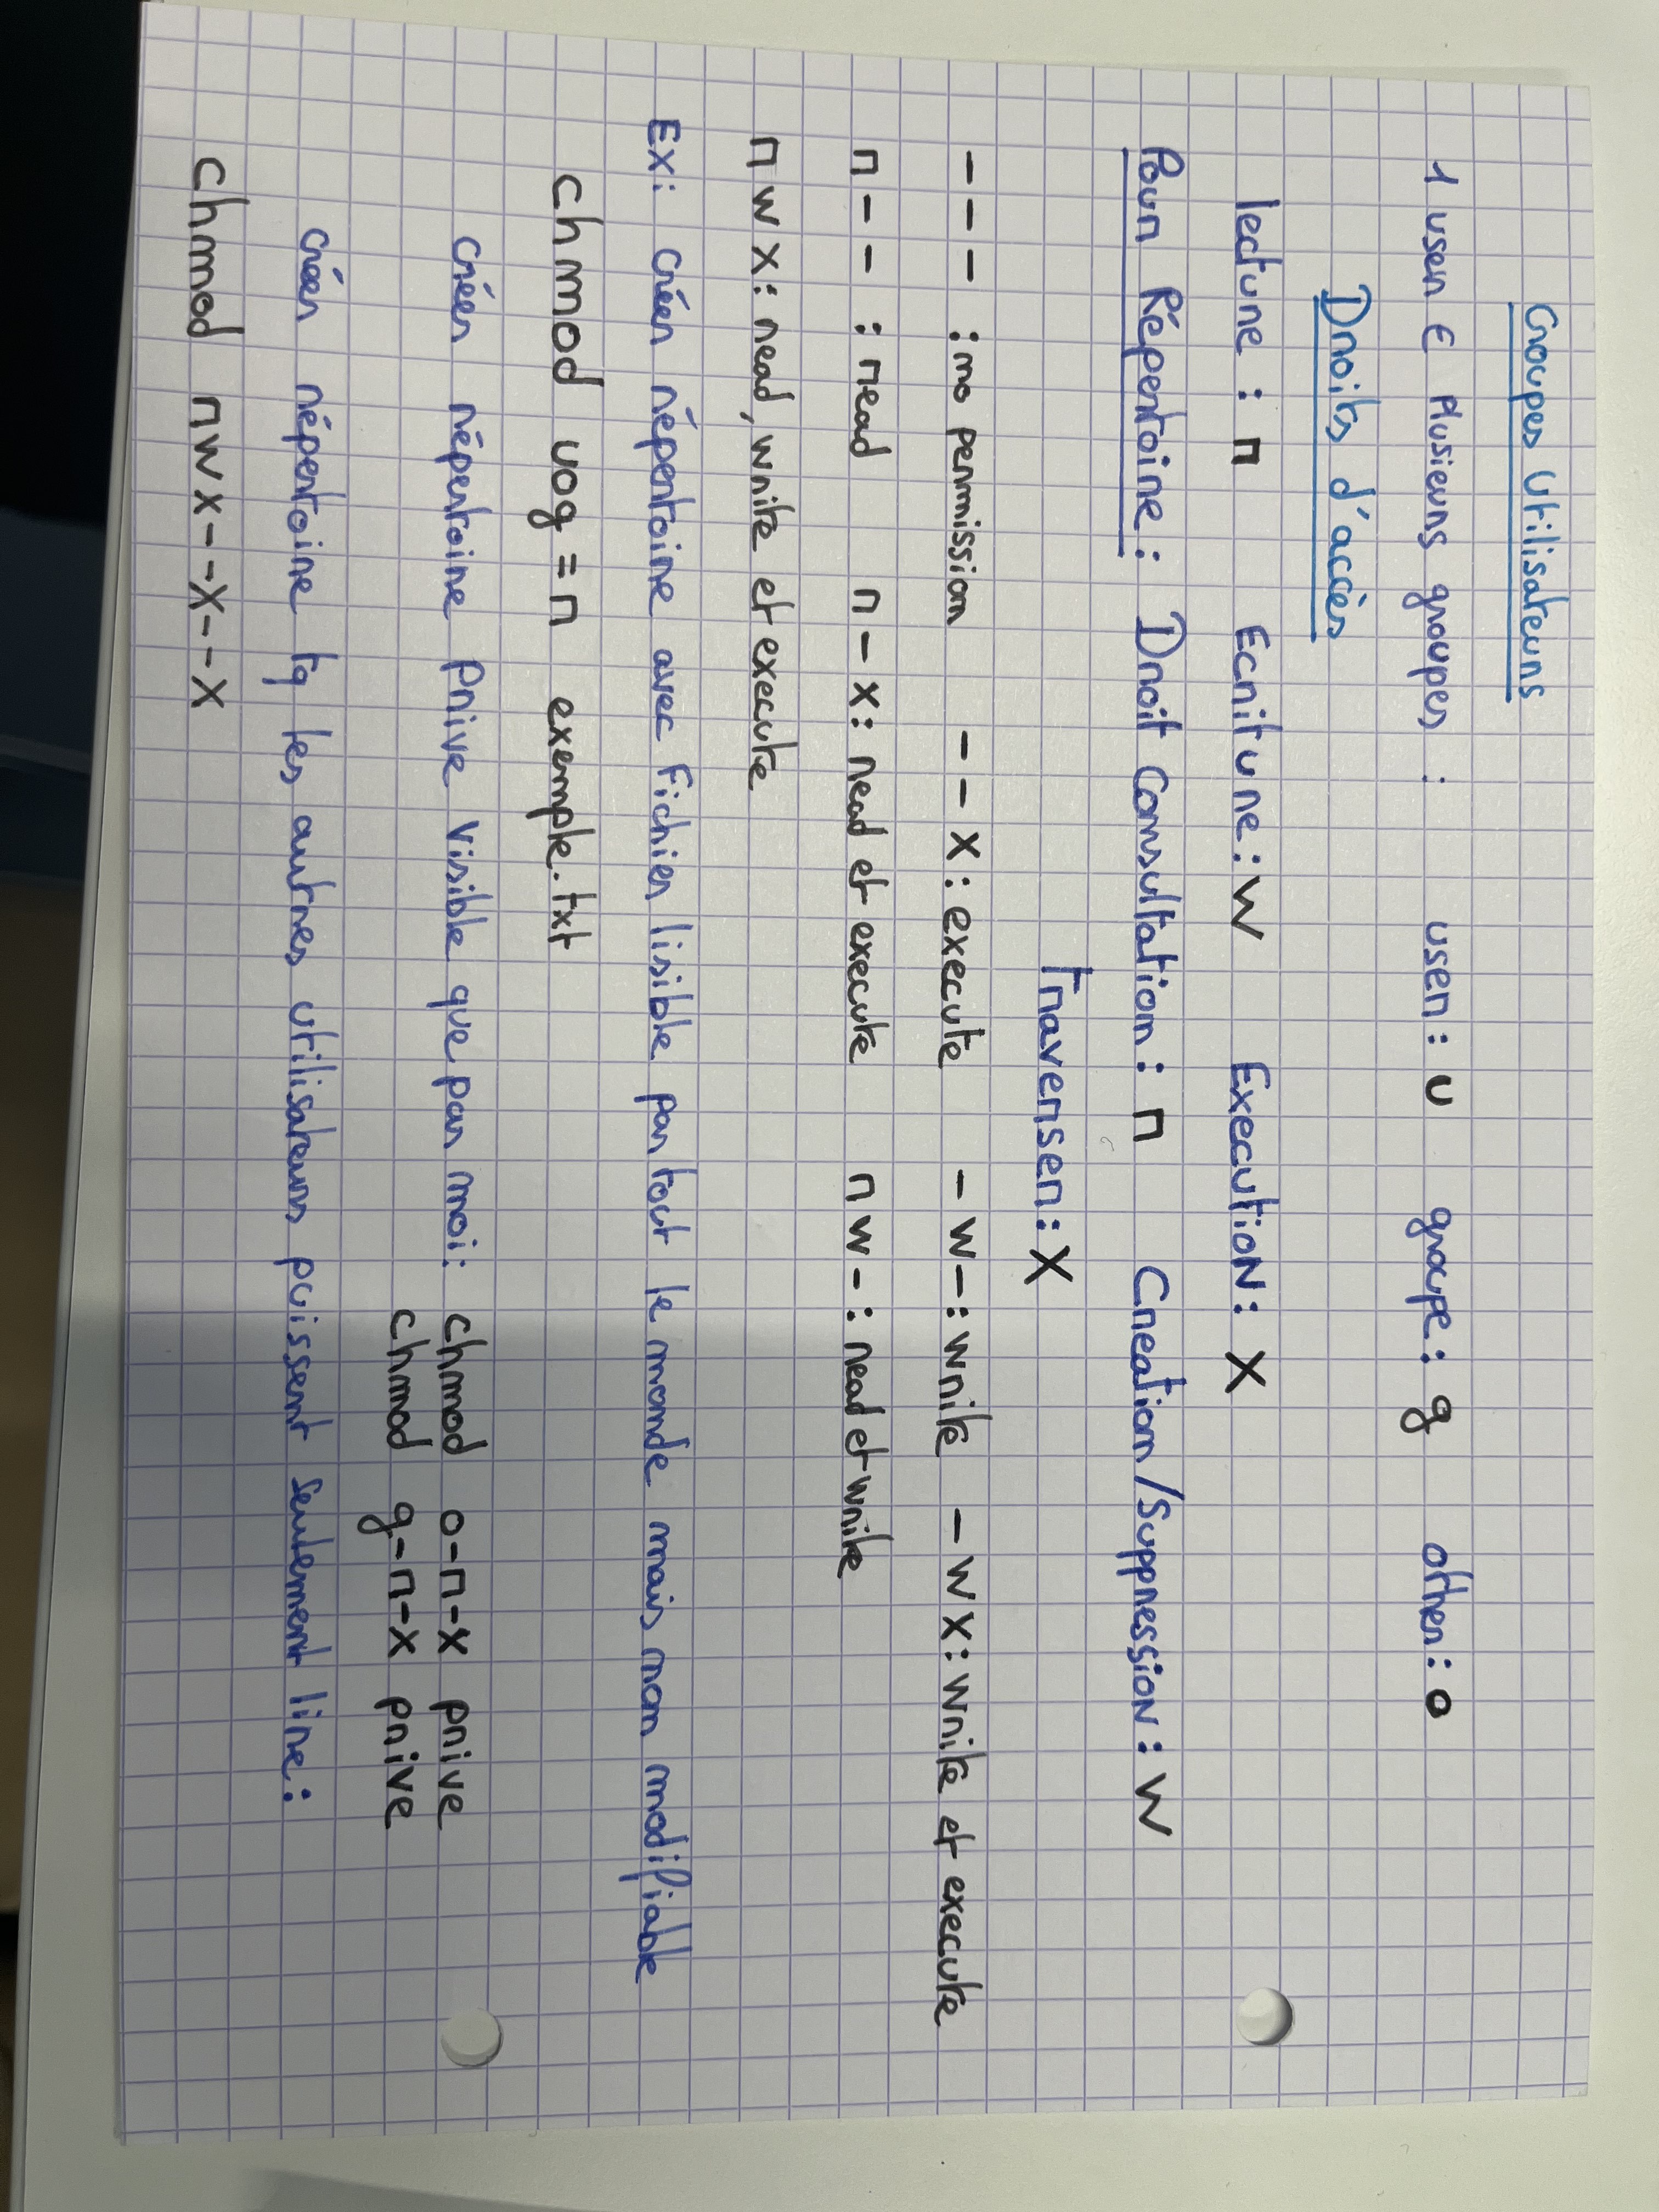 Groupes Utilisateurs
1 user ∈ Plusieurs groupes : user : u groupe : g other : o
Droits d'accès
lecture : r Ecriture : W Execution : X
Pour Répertoire : Droit Consultation : r Creation/Suppression : W
Traverser : X
--- : no permission --X : execute -W- : write -WX : write et execute
r-- : read r-X : read et execute rw- : read et write
rwx : read, write et execute
Ex : créer répertoire avec fichier lisible par tout le monde mais non modifiable
chmod uog = r exemple.txt
créer répertoire prive visible que par moi : chmod o-r-x prive
chmod g-r-x prive
créer répertoire tq les autres utilisateurs puissent seulement lire :
chmod rwx--X--X